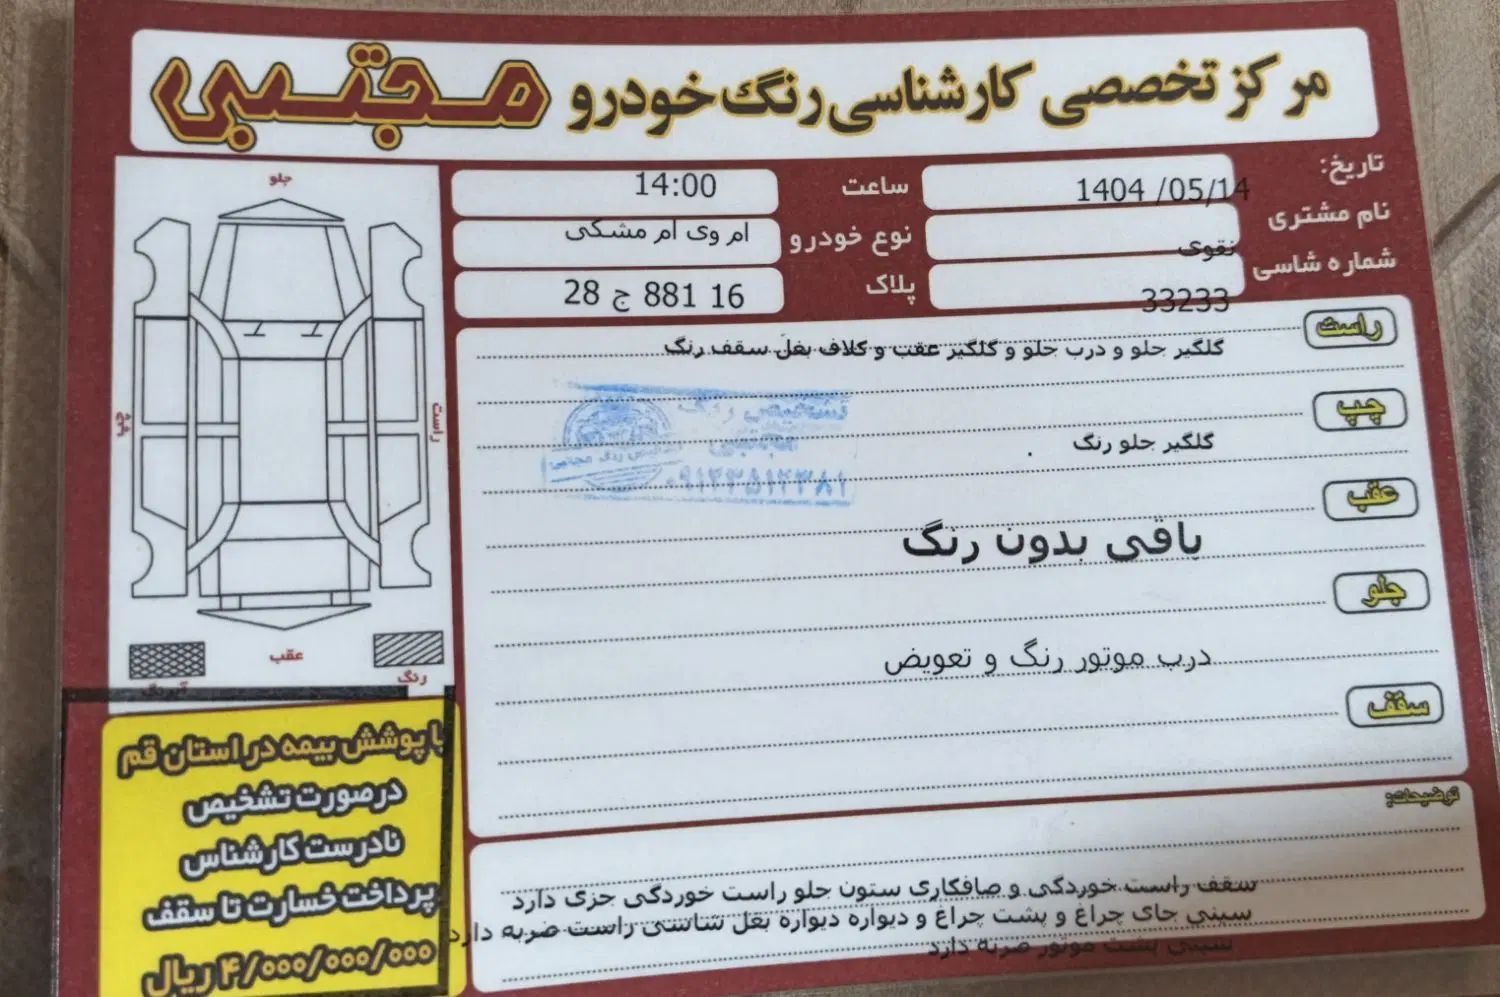 مرکز تخصصی کارشناسی رنگ خودرو مجتبی
تاریخ: 1404 /05/14
ساعت 14:00
نام مشتری نقوی
نوع خودرو ام وی ام مشکی
شماره شاسی 33233
پلاک 28 ج 881 16
راست
گلگیر جلو و درب جلو و گلگیر عقب و کلاف بغل سقف رنگ
چپ
گلگیر جلو رنگ
عقب
باقی بدون رنگ
جلو
درب موتور رنگ و تعویض
سقف
توضیحات:
سقف راست خوردگی و صافکاری ستون جلو راست خوردگی جزی دارد
سینی جای چراغ و پشت چراغ و دیواره دیواره بغل شاسی راست ضربه دارد
سینی پشت موتور ضربه دارد
تشخیص رنگ
مجتبی
تشخیص رنگ مجتبی
۰۹۱۲۲۵۱۲۳۸۱
جلو
چپ
راست
عقب
رنگ
با پوشش بیمه در استان قم
درصورت تشخیص
نادرست کارشناس
پرداخت خسارت تا سقف
۴/۰۰۰/۰۰۰/۰۰۰ ریال